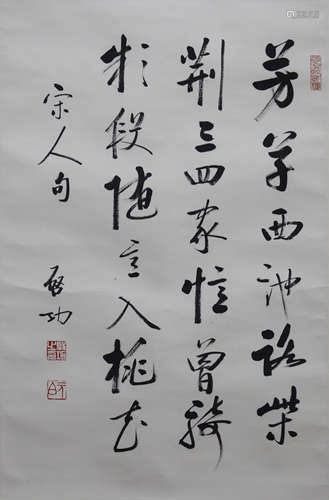 芳草西池路柴
荆三四家忆曾骑
款段随意入桃花
宋人句
启功